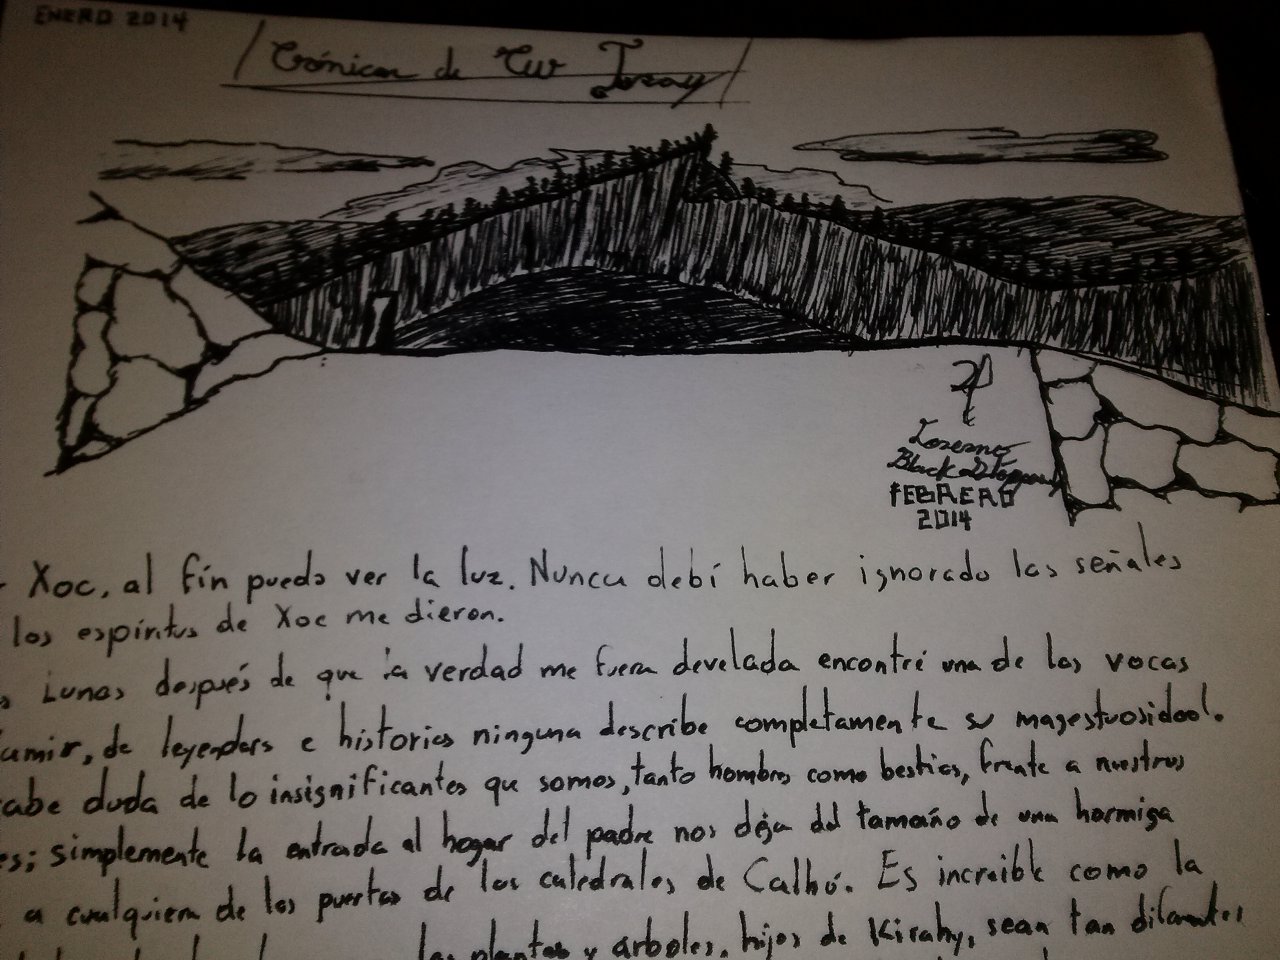 ENERO 2014
Crónicas de
Black
FEBRERO
2014
Xoc, al fin puedo ver la luz. Nunca debí haber ignorado las señales
los espíritus de Xoc me dieron.
Lunas después de que la verdad me fuera develada encontré una de las vocas
amir, de leyendas e historias ninguna describe completamente su magestuosidad.
cabe duda de lo insignificantes que somos, tanto hombres como bestias, frente a nuestros
es; simplemente la entrada al hogar del padre nos deja del tamaño de una hormiga
a cualquiera de las puertas de las catedrales de Calhó. Es increible como la
las plantas y arboles, hijos de Kirahy, sean tan diferentes